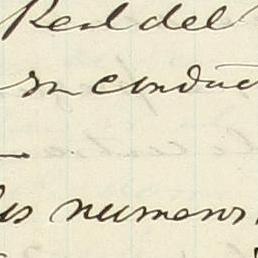 Real del
su conduc
los numeros